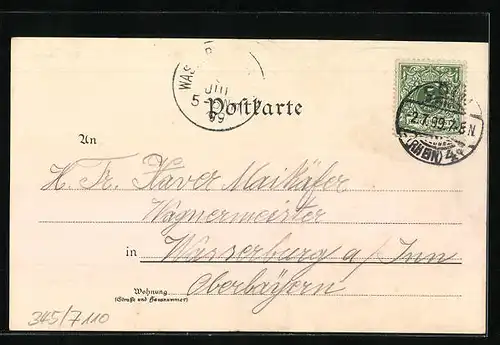 WAS
JUL
5-6 N
99
Postkarte
5
2.7.99.7-8N
(RHEIN) 4
An
H. Fr. Xaver Maikäfer
Wagnermeister
in Wasserburg a/Inn
Oberbayern
Wohnung
(Straße und Hausnummer)
345/7110